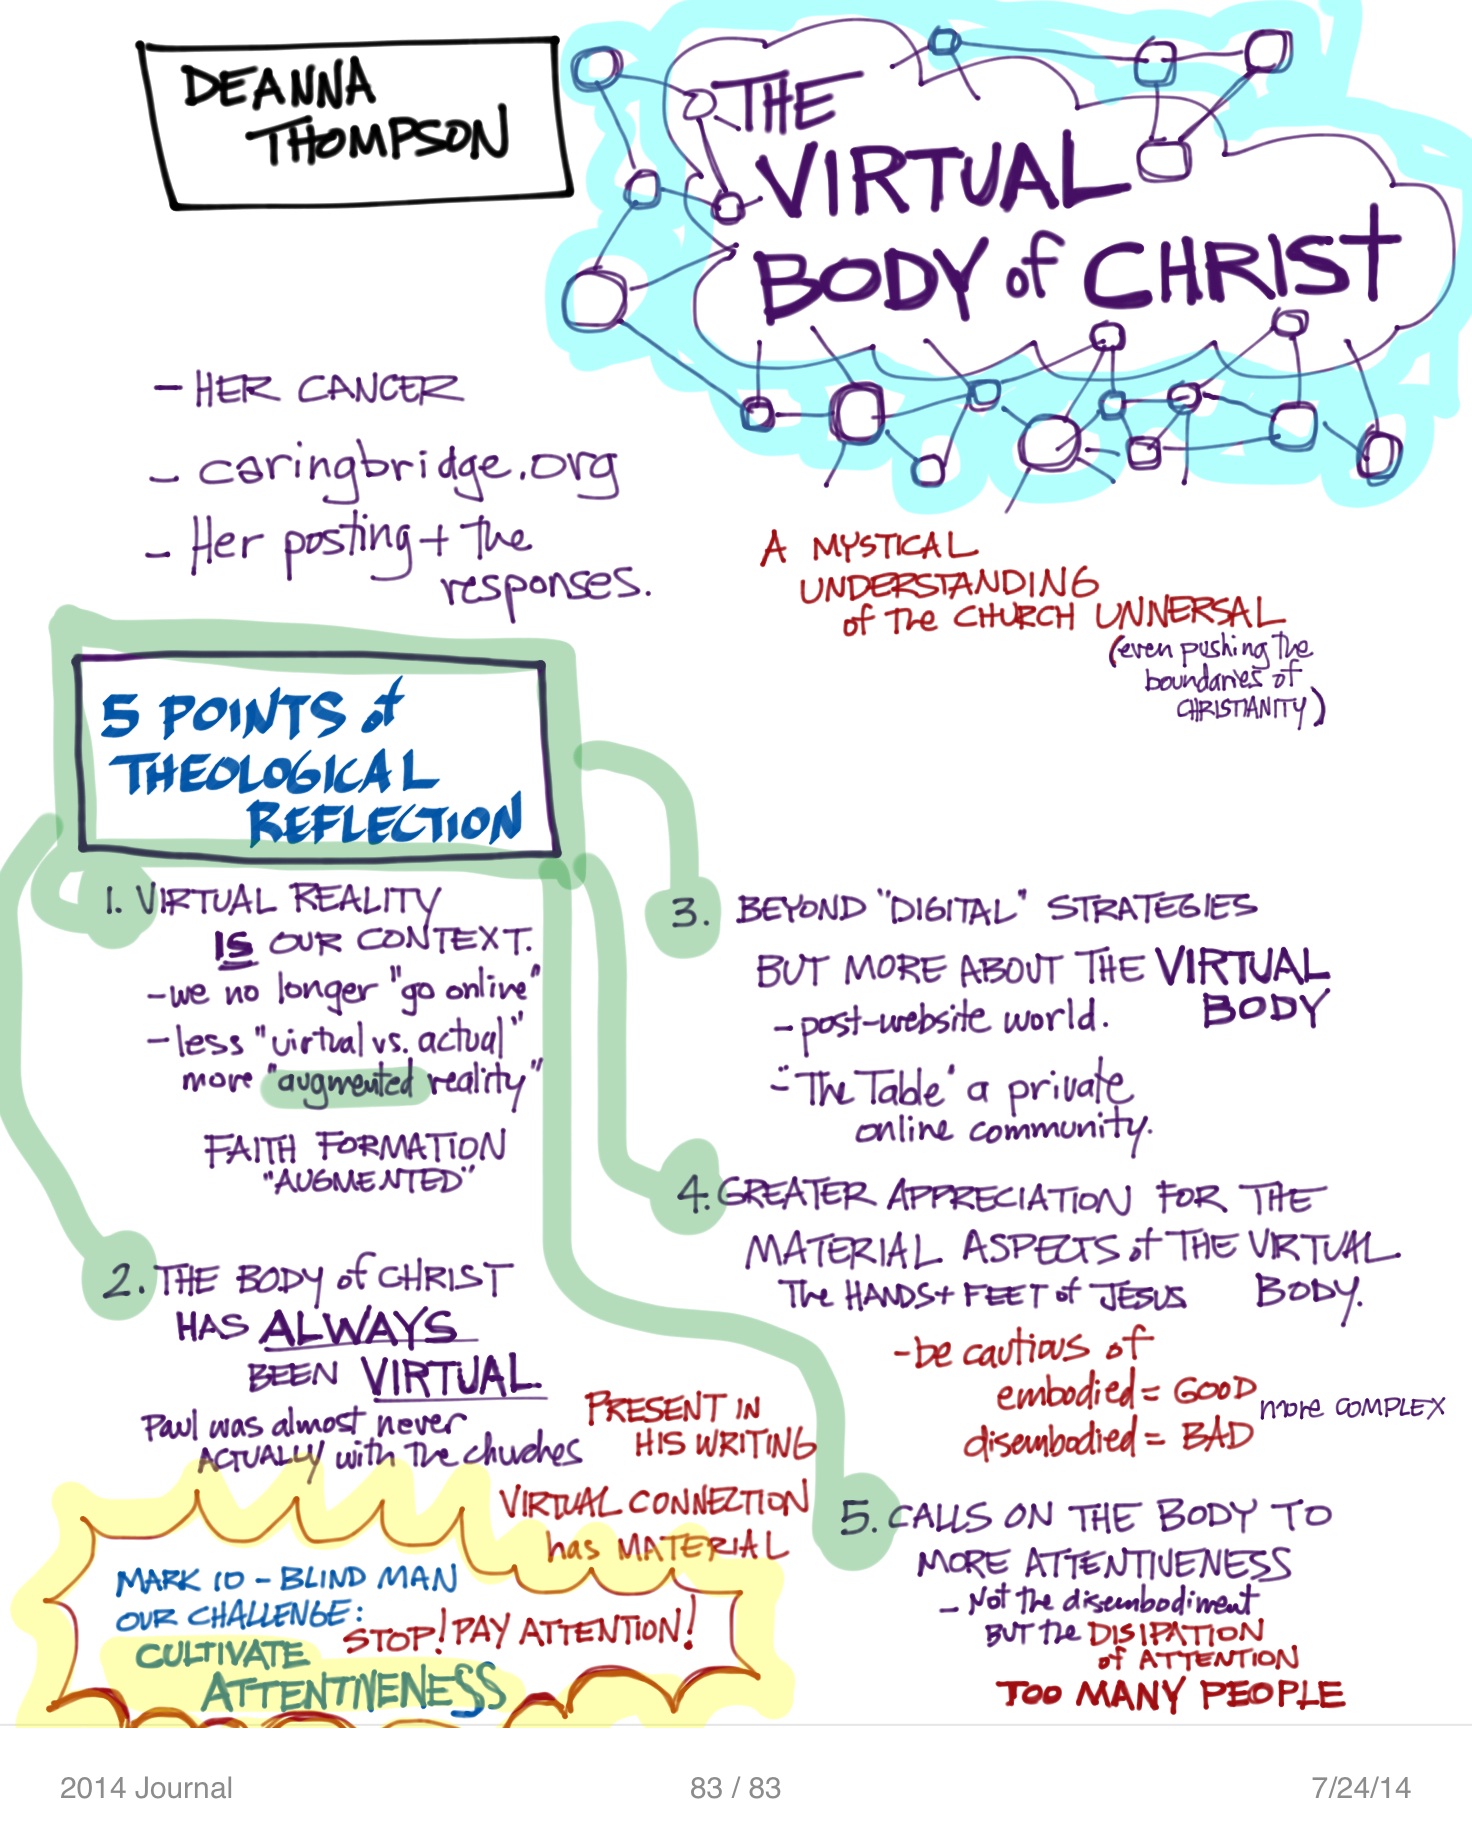 DEANNA
THOMPSON
THE
VIRTUAL
BODY of CHRIST
- HER CANCER
- caringbridge.org
- Her posting + the
responses.
A MYSTICAL
UNDERSTANDING
of the CHURCH UNIVERSAL
(even pushing the
boundaries of
CHRISTIANITY)
5 POINTS of
THEOLOGICAL
REFLECTION
1. VIRTUAL REALITY
IS OUR CONTEXT.
- we no longer "go online"
- less "virtual vs. actual"
more "augmented reality"
FAITH FORMATION
"AUGMENTED"
2. THE BODY of CHRIST
HAS ALWAYS
BEEN VIRTUAL
Paul was almost never
ACTUALLY with the churches
PRESENT IN
HIS WRITING
VIRTUAL CONNECTION
has MATERIAL
MARK 10 - BLIND MAN
OUR CHALLENGE:
STOP! PAY ATTENTION!
CULTIVATE
ATTENTIVENESS
3. BEYOND "DIGITAL" STRATEGIES
BUT MORE ABOUT THE VIRTUAL
BODY
- post-website world.
- "The Table" a private
online community.
4. GREATER APPRECIATION FOR THE
MATERIAL ASPECTS of THE VIRTUAL
BODY.
The HANDS + FEET of JESUS
- be cautious of
embodied = GOOD
disembodied = BAD
more COMPLEX
5. CALLS ON THE BODY TO
MORE ATTENTIVENESS
- Not the disembodiment
BUT the DISIPATION
of ATTENTION
TOO MANY PEOPLE
2014 Journal
83 / 83
7/24/14